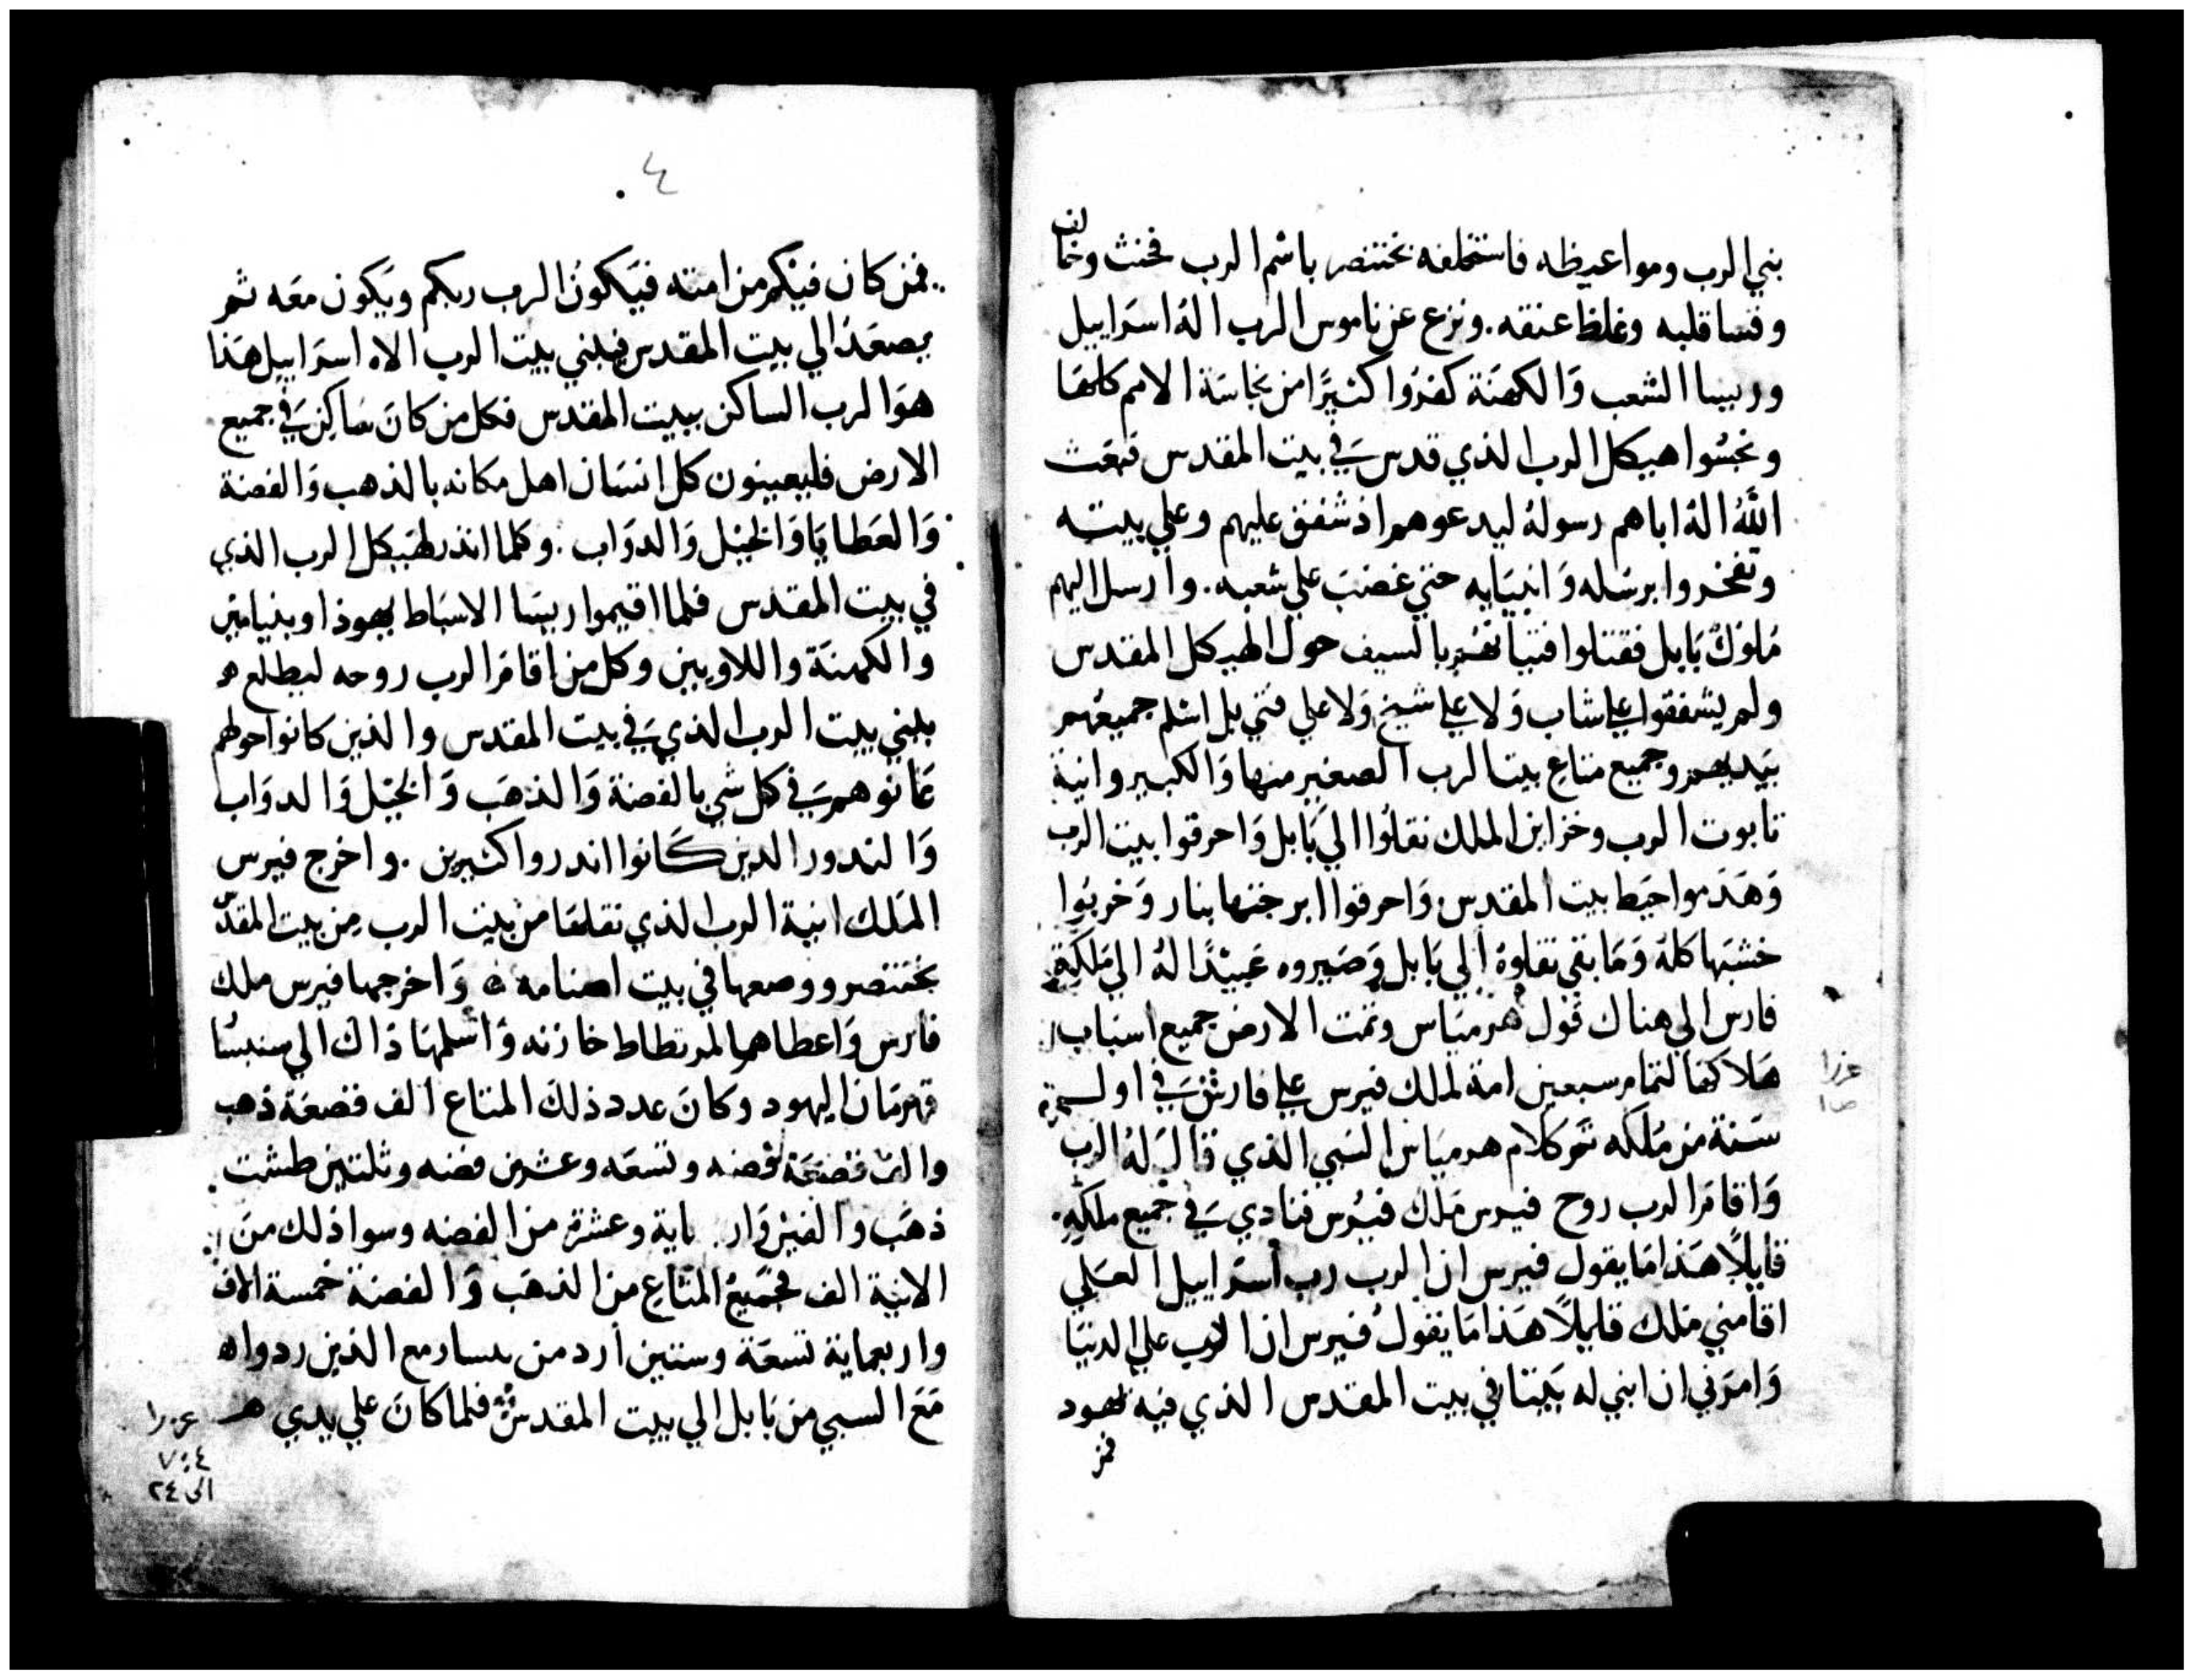 بني الرب ومواعيظه فاستخلفه بختنصر باسم الرب فحنث وخالف
وقسا قلبه وغلظ عنقه. ونزع عن ناموس الرب اله اسراييل
وريسا الشعب والكهنة كفروا كثيرًا من نجاسة الامم كلها
ونجسوا هيكل الرب الذي قدس في بيت المقدس فبعث
الله اله اباهم رسوله ليدعوهم اذ شفق عليهم وعلي بيته
وتفخروا برسله وانبيايه حتي غضب علي شعبه. وارسل اليهم
ملوك بابل فقتلوا فتيانهم بالسيف حول الهيكل المقدس
ولم يشفقوا علي شاب ولا علي شيخ ولا علي فتي بل اسلم جميعهم
بيديهم وجميع متاع بيت الرب الصغير منها والكبير وانية
تابوت الرب وخزاين الملك نقلوا الي بابل واحرقوا بيت الرب
وهدموا حيط بيت المقدس واحرقوا ابرجتها بنار وخربوا
خشبها كله وما بقي نقلوه الي بابل وصيروه عبيدًا له الي ملكة
فارس الي هناك قول هرمياس وتمت الارض جميع اسباب
هلاكها لتمام سبعين امة لملك فيرس علي فارس في اول
سنة من ملكه نحو كلام هرمياس النبي الذي قال له الرب
واقام الرب روح فيرس ملك فيرس فنادي في جميع ملكه.
قايلًا هذا ما يقول فيرس ان الرب رب اسراييل العلي
اقامني ملك قايلًا هذا ما يقول فيرس ان الرب علي الدنيا
وامرني ان ابني له بيتا في بيت المقدس الذي فيه يهود
فمن
عزرا
ص ١
٤
فمن كان فيكم من امته فيكون الرب ربكم ويكون معه ثم
يصعد الي بيت المقدس فيبني بيت الرب الاه اسراييل هذا
هو الرب الساكن ببيت المقدس فكل من كان ساكن في جميع
الارض فليعينون كل انسان اهل مكانه بالذهب والفضة
والعطايا والخيل والدواب. وكلما انذر لهيكل الرب الذي
في بيت المقدس فلما اقيموا ريسا الاسباط يهوذا وبنيامين
والكهنة واللاويين وكل من اقام الرب روحه ليطلع
يبني بيت الرب الذي في بيت المقدس والذين كانوا حولهم
عانوهم في كل شي بالفضة والذهب والخيل والدواب
والندور الدين كانوا اندروا كثيرين. واخرج فيرس
الملك انية الرب الذي نقلها من بيت الرب من بيت المقدس
بختنصر ووضعها في بيت اصنامه واخرجها فيرس ملك
فارس واعطاهم لمرتطاط خازنه واسلمها ذاك الي سنبسا
قهرمان اليهود وكان عدد ذلك المتاع الف قضعة ذهب
والف قضعة فضه وتسعه وعشرين فضه وثلتين طشت
ذهب والفين واربماية وعشرة من الفضه وسوا ذلك من
الانية الف فجميع المتاع من الذهب والفضة خمسة الاف
واربعماية تسعة وستين ارد من مع الذين ردوا
مع السبي من بابل الي بيت المقدس فلما كان علي يدي
عزرا
٤ : ٧
الى ٢٤